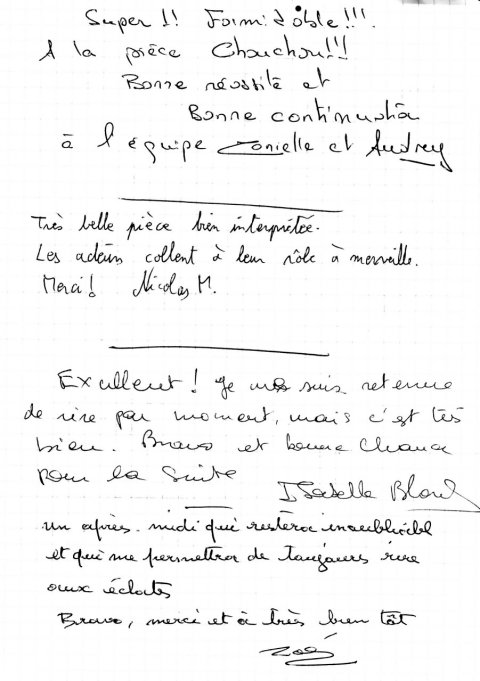 Super !! Formidable !!!.
A la pièce Chouchou !!!
Bonne réussite et
Bonne continuation
à l'équipe et Audrey
Très belle pièce bien interprétée.
Les acteurs collent à leur rôle à merveille.
Merci ! Nicolas M.
Excellent ! Je me suis retenue
de rire par moment, mais c'est très
bien. Bravo et bonne chance
pour la suite
Isabelle
un après-midi qui restera inoubliable
et qui me permettra de toujours rire
aux éclats
Bravo, merci et à très bien tôt
Zoé